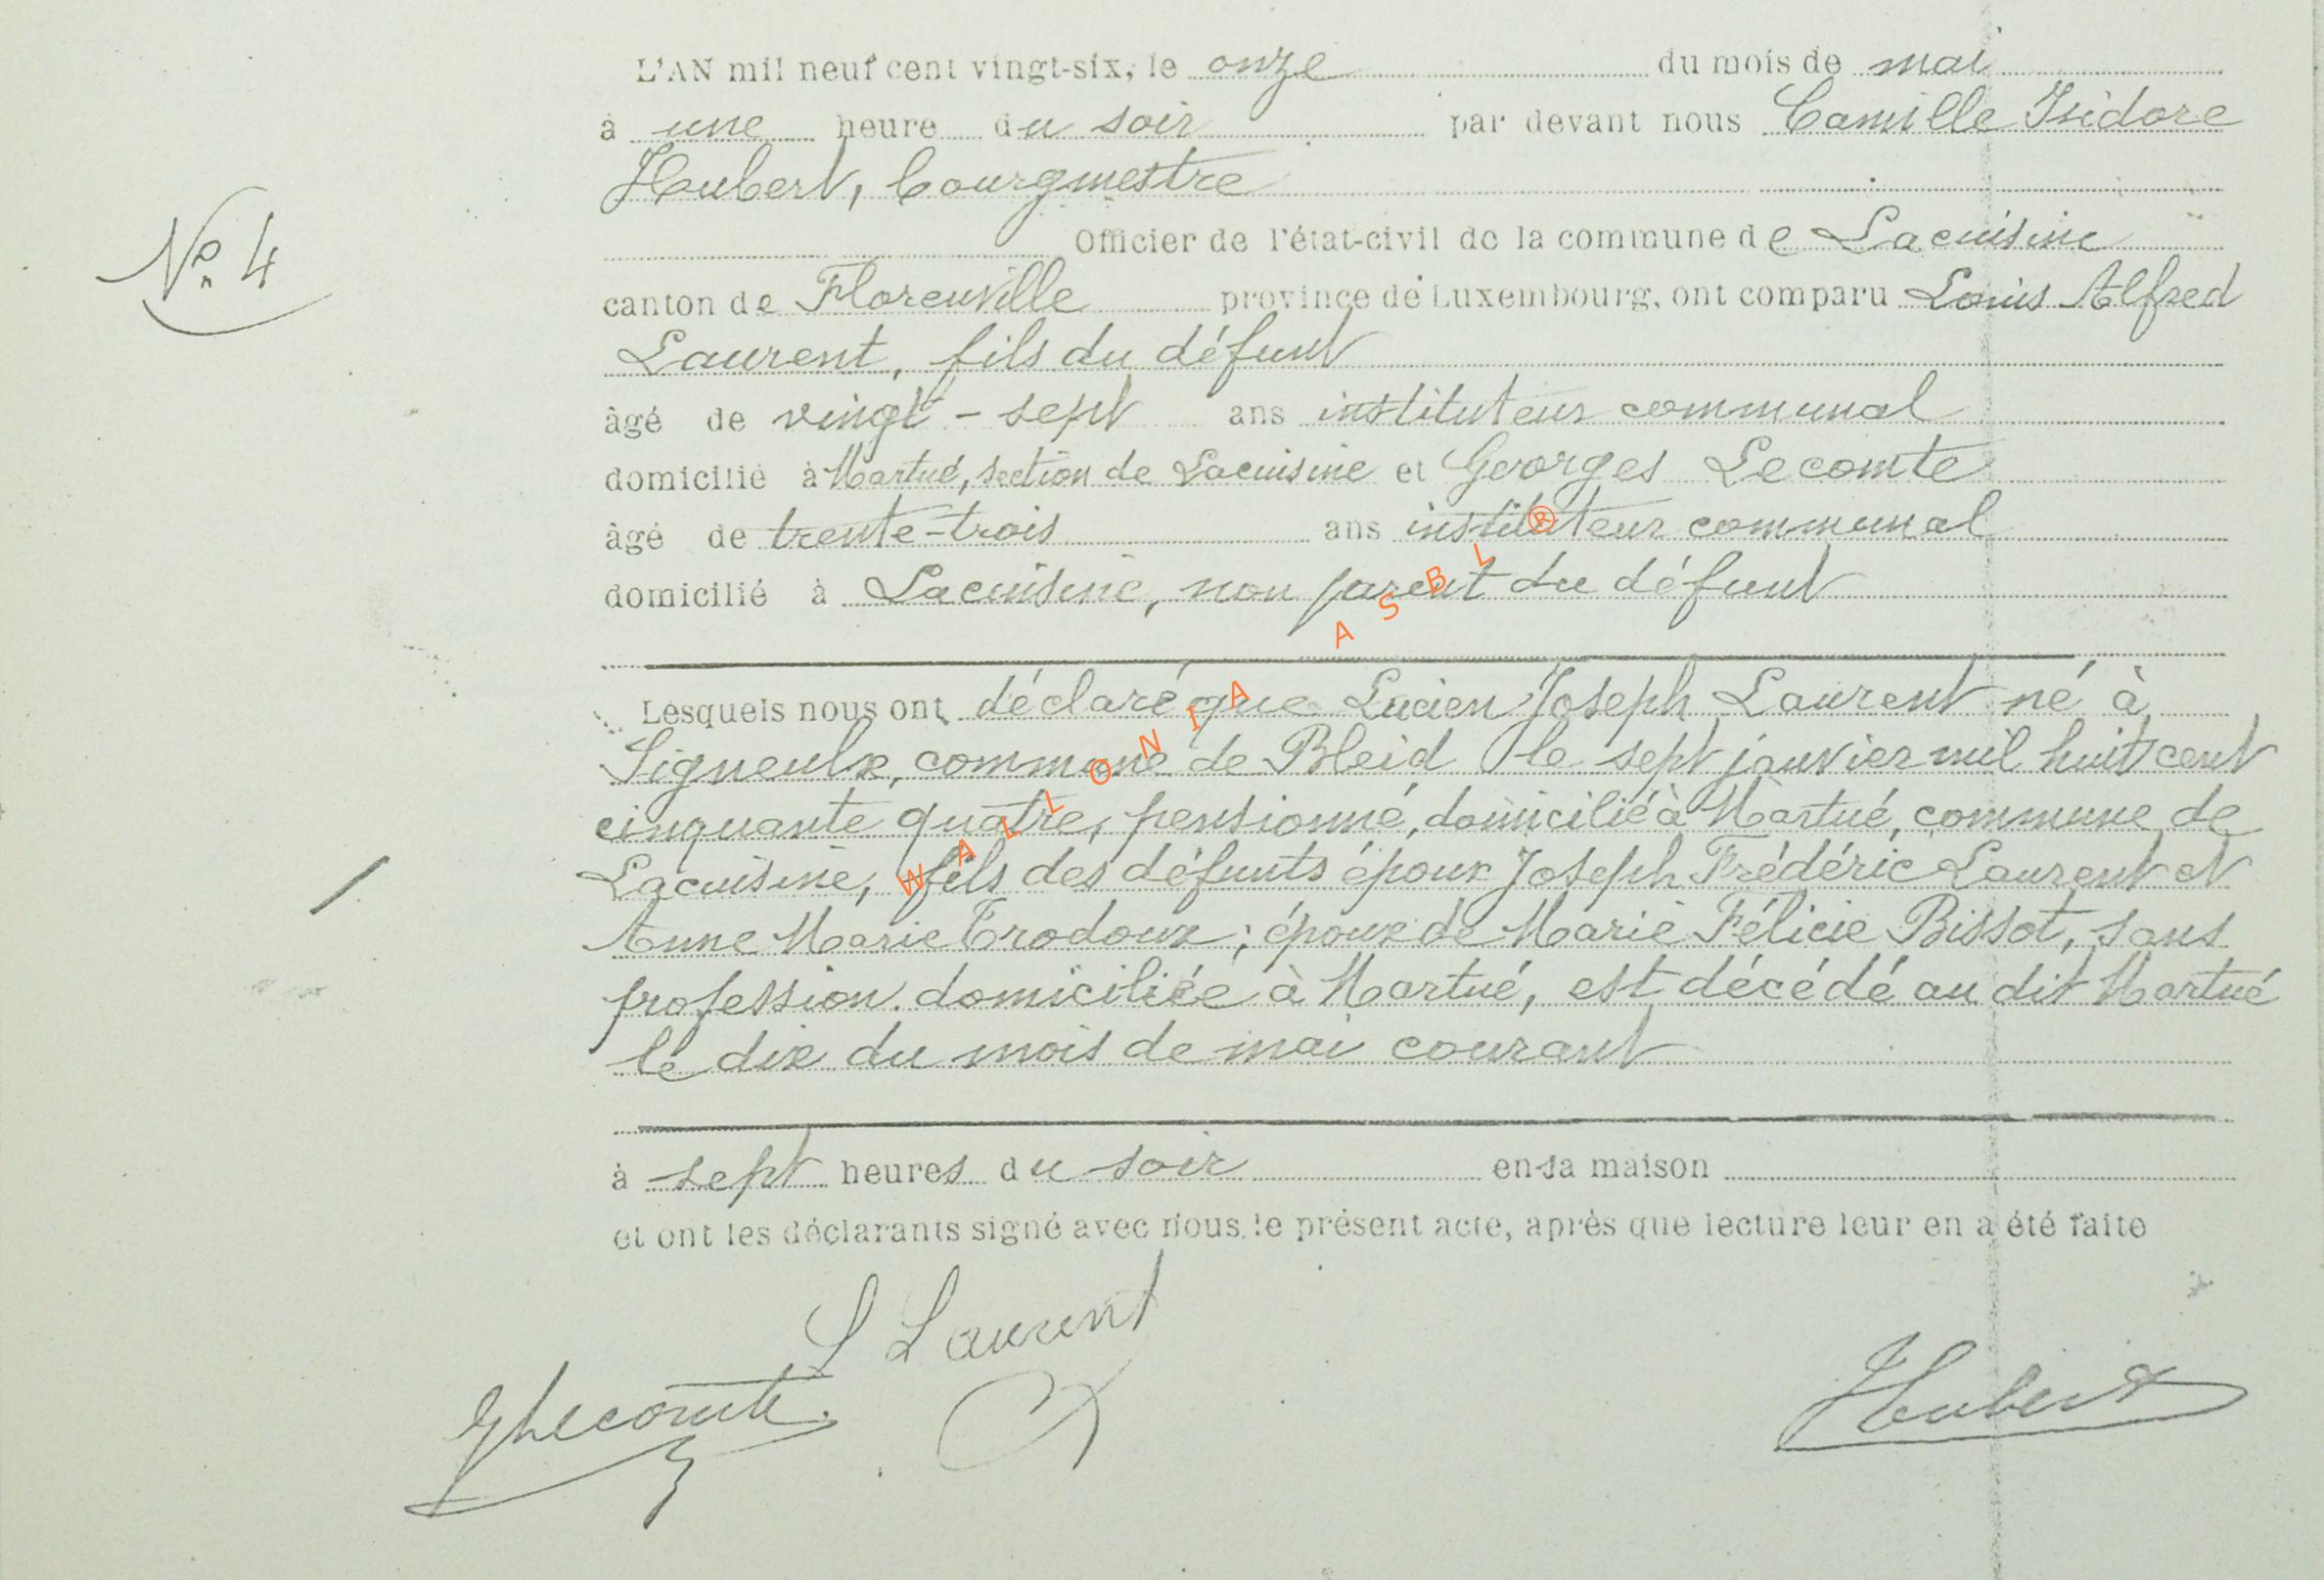 L'AN mil neuf cent vingt-six, le onze du mois de mai
à une heure du soir par devant nous Camille Isidore
Hubert, bourgmestre
Officier de l'état-civil de la commune de Lacuisine
N° 4
canton de Florenville province de Luxembourg, ont comparu Louis Alfred
Laurent, fils du défunt
âgé de vingt-sept ans instituteur communal
domicilié à Martué, section de Lacuisine et Georges Lecomte
âgé de trente-trois ans instituteur communal
domicilié à Lacuisine, non parent du défunt
Lesquels nous ont déclaré que Lucien Joseph Laurent né à
Signeulx, commune de Bleid le sept janvier mil huit cent
cinquante quatre, pensionné, domicilié à Martué, commune de
Lacuisine, fils des défunts époux Joseph Frédéric Laurent et
Anne Marie Trodoux ; époux de Marie Félicie Bissot, sans
profession. domiciliée à Martué, est décédé au dit Martué
le dix du mois de mai courant
à sept heures du soir en sa maison
et ont les déclarants signé avec nous le présent acte, après que lecture leur en a été faite
L Laurent
GLecomte
Hubert
WALLONIA ASBL ®